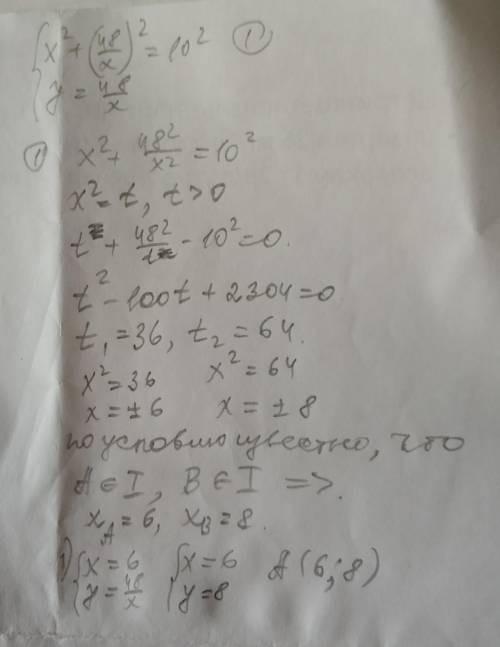 {x² + (48/x)² = 10² ①
{y = 48/x
① x² + 48²/x² = 10²
x² = t, t > 0
t + 48²/t - 10² = 0.
t² - 100t + 2304 = 0
t₁ = 36, t₂ = 64.
x² = 36 x² = 64
x = ± 6 x = ± 8
по условию известно, что
A ∈ I, B ∈ I =>.
x_A = 6, x_B = 8.
1) {x = 6 {x = 6 A (6; 8)
{y = 48/x {y = 8